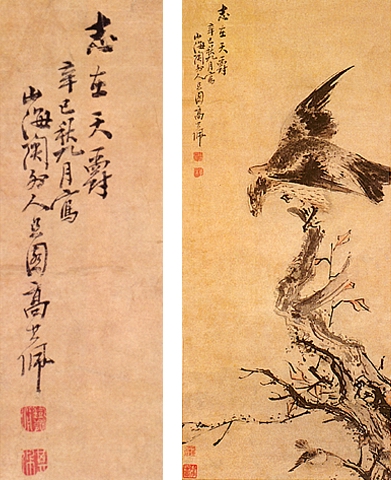 志在天爵
辛巳秋九月寫
山海関外人且園高其佩
志在天爵
辛巳秋九月寫
山海関外人且園高其佩